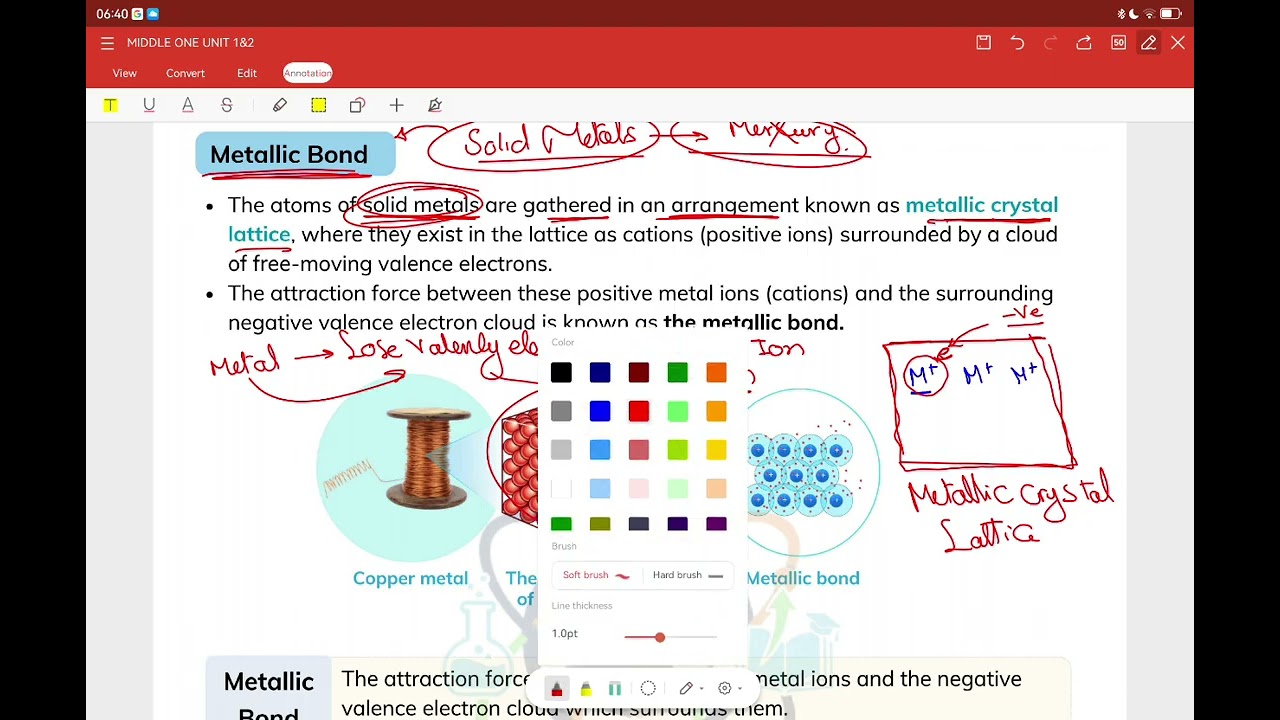 06:40
MIDDLE ONE UNIT 1&2
50
View Convert Edit Annotation
T U A S
Solid Metals → Mercury.
Metallic Bond
• The atoms of solid metals are gathered in an arrangement known as metallic crystal
lattice, where they exist in the lattice as cations (positive ions) surrounded by a cloud
of free-moving valence electrons.
• The attraction force between these positive metal ions (cations) and the surrounding
negative valence electron cloud is known as the metallic bond.
-ve
Metal → Lose Valenly ele
Ion
e-
M+ M+ M+
Metallic Crystal
Lattice
Color
Brush
Soft brush Hard brush
Line thickness
1.0pt
Copper metal The
of
Metallic bond
Metallic
Bond
The attraction force metal ions and the negative
valence electron cloud which surrounds them.